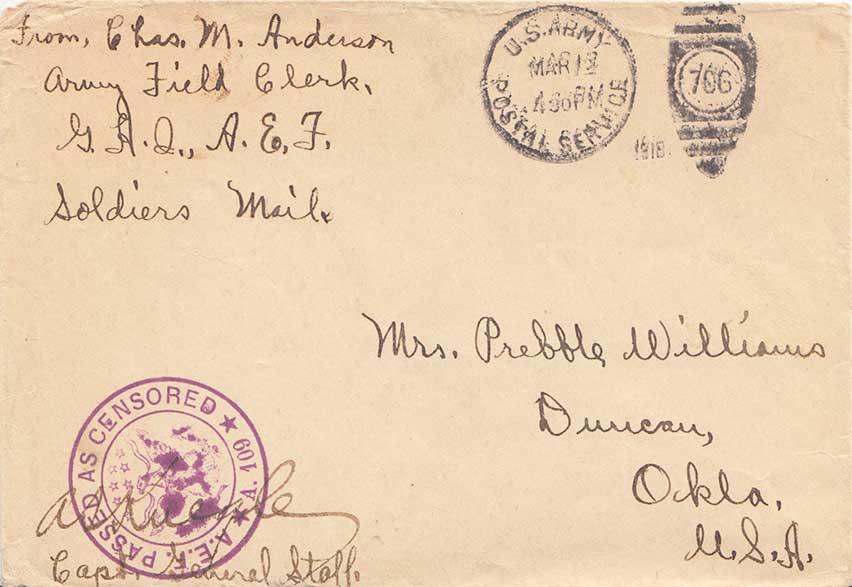 From, Chas. M. Anderson
Army Field Clerk.
A.E.F.
Soldiers Mail.
U.S. ARMY
POSTAL SERVICE
MAR 13
PM
706
1918
Mrs. Prebble Williams
Duncan,
Okla.
U.S.A.
A.E.F. PASSED AS CENSORED ★ A. 109 ★
Capt. General Staff.